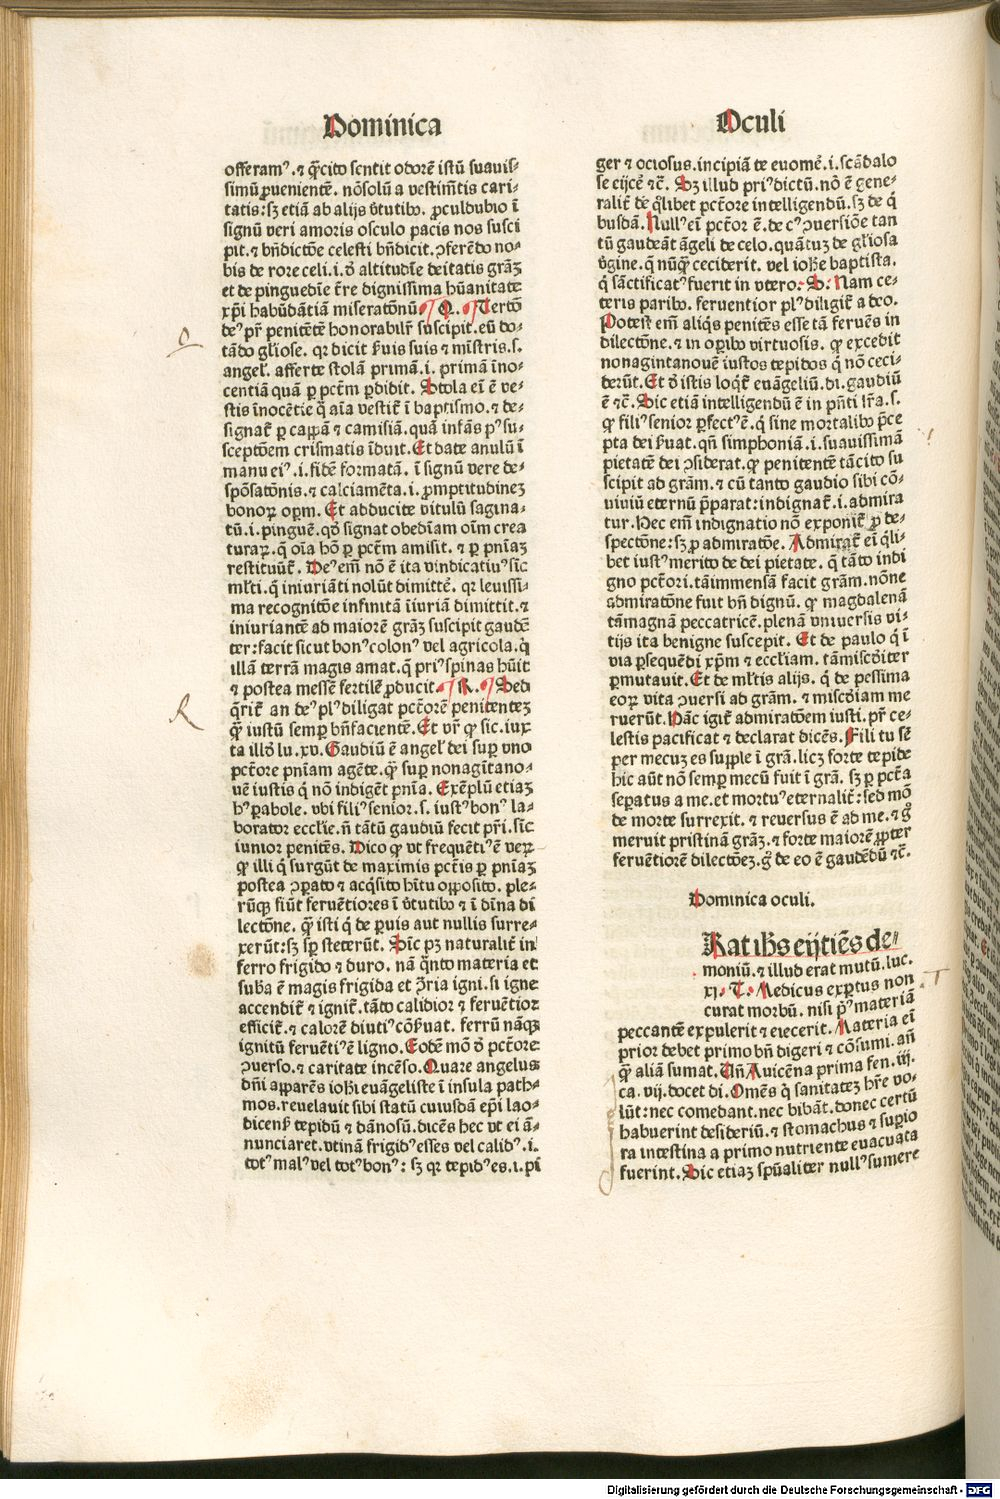 Dominica
offeram⁹.⁊ q̃cito sentit odorē istū suauis⸗
simū ꝓuenientē. nōsolū a vestimētis cari⸗
tatis:sꝫ etiā ab alijs v̾tutibꝰ. ꝓculdubio ī
signū veri amoris osculo pacis nos susci
pit.⁊ bn̄dictōe celesti bn̄dicit.ↄferēdo no⸗
bis de rore celi.i.ð altitudīe deitatis grāꝫ
et de pinguedīe t̄re dignissima hūanitate
xp̄i habūdātiā miseratōnū Q. Uerto
de⁹ pr̄ penitētē honorabilr̄ suscipit.eū do⸗
tādo gl̄iose. qꝛ dicit s̄uis suis ⁊ mīstris.s.
angel̾. afferte stolā primā.i. primā īno⸗
centiā quā ꝑ pctm̄ ꝑdidit. Stola eī ē ve⸗
stis īnocētie q̄ aīa vestit̾ ī baptismo.⁊ de⸗
signat̾ ꝑ cappā ⁊ camisiā.quā infās p⁹ su⸗
sceptōem crismatis īduit.Et date anulū ī
manu ei⁹.i.fidē formatā. ī signū vere de⸗
spōsatōnis.⁊ calciamēta.i.ꝓmptitudineꝫ
bonoꝝ opm̄. Et adducite vitulū sagina⸗
tū.i.pinguē.qð signat obediam oīm crea
turaꝝ.q̄ oīa hō ꝑ pctm̄ amisit.⁊ ꝑ pn̄iaꝫ
restituūt̾. De⁹ em̄ nō ē ita vindicatiu⁹sic
ml̄ti.q̄ iniuriāti nolūt dimittē. qꝛ leuissi⸗
ma recognitōe infinitā īiuriā dimittit.⁊
iniuriantē ad maiorē grāꝫ suscipit gaudē
ter:facit sicut bon⁹colon⁹ vel agricola.q̄
illā terrā magis amat.q̄ pri⁹spinas hūit
⁊ postea messē fertilē ꝓducit. R. Sed
q̄rit̾ an de⁹ pl⁹diligat pctōrē penitenteꝫ
q̄ iustū semꝑ bn̄facientē.Et vr̄ ꝙ sic.iux
ta illð lu.xv.Gaudiū ē angel̾ dei suꝑ vno
pctōre pn̄iam agēte.q̄ suꝑ nonagītano⸗
uē iustis q̄ nō indigēt pn̄ia.Exēplū etiaꝫ
h⁹parabole. vbi fili⁹senior.s. iust⁹bon⁹ la⸗
borator eccl̄ie.n̄ tātū gaudiū fecit pr̄i.sic
iunior penitēs. Dico ꝙ vt frequēti⁹ē veꝝ
ꝙ illi q̄ surgūt de maximis pctīs ꝑ pn̄iaꝫ
postea ↄꝑato ⁊ acq̄sito hītu opposito. ple⸗
rūqꝫ fiūt feruētiores ī v̾tutibꝰ ⁊ ī dīna di
lectōne. q̄ isti q̄ de ꝑuis aut nullis surre⸗
xerūt:sꝫ sꝑ steterūt. Sic pꝫ naturalit̾ in
ferro frigido ⁊ duro. nā q̄nto materia et
suba ē magis frigida et ↄ̄ria igni.si igne
accendit̾ ⁊ ignit̾.tāto calidior ⁊ feruētior
efficit̾.⁊ calorē diuti⁹cōs̄uat. ferrū nāqꝫ
ignitū feruēti⁹ē ligno.Eodē mō ð pctōre
ↄuerso.⁊ caritate incēso.Quare angelus
dn̄i apparēs iohi euāgeliste ī insula path⸗
mos.reuelauit sibi statū cuiusdā ep̄i lao⸗
dicens̾ tepidū ⁊ dānosū.dicēs hec vt ei ā⸗
nunciaret.vtinā frigid⁹esses vel calid⁹.i.
tot⁹mal⁹vel tot⁹bon⁹: sꝫ qꝛ tepid⁹es.i.pi
O
R
Oculi
ger ⁊ ociosus.incipiā te euome̾.i.scādalo
se eijce̾ ⁊c̄. Sꝫ illud pri⁹dictū.nō ē gene⸗
ralit̾ de q̄libet pctōre intelligendū.sꝫ de q̄
busdā.Null⁹eī pctōr ē.de c⁹ↄuersiōe tan
tū gaudeāt āgeli de celo.quātuꝫ de gl̄iosa
v̾gine.q̄ nūq̄ ceciderit. vel ioh̄e baptista.
q̄ sāctificat⁹fuerit in vtero. S. Nam ce⸗
teris paribꝰ. feruentior pl⁹diligit̾ a deo.
Potest em̄ aliqs penitēs esse tā feruēs in
dilectōne.⁊ in oꝑibꝰ virtuosis. ꝙ excedit
nonagintanouē iustos tepidos q̄ nō ceci⸗
derūt.Et ð istis loqt̾ euāgeliū.di.gaudiū
ē ⁊c̄.Sic etiā intelligendū ē in pn̄ti lr̄a.s.
ꝙ fili⁹senior ꝑfect⁹ē.q̄ sine mortalibꝰ p̄ce
pta dei s̄uat. qn̄ simphoniā.i.suauissimā
pietatē dei ↄsiderat.ꝙ penitentē tācito su
scipit ad grām.⁊ cū tanto gaudio sibi cō⸗
uiuiū eternū p̄parat:indignat̾.i.admira
tur.Hec em̄ indignatio nō exponit̾ ꝓ de⸗
spectōne:sꝫ ꝓ admiratōe. Admirat̾ eī q̄li⸗
bet iust⁹merito de dei pietate. q̄ tāto indi
gno pctōri.tāimmensā facit grām.nōne
admiratōne fuit bn̄ dignū. ꝙ magdalenā
tāmagnā peccatricē.plenā vniuersis vi⸗
tijs ita benigne suscepit. Et de paulo q̄ ī
via ꝑsequēdi xp̄m ⁊ eccl̄iam. tāmisc̾diter
ꝑmutauit.Et de ml̄tis alijs. q̄ de pessima
eoꝝ vita ↄuersi ad grām.⁊ misc̾diam me
ruerūt.Hāc igit̾ admiratōem iusti.pr̄ ce⸗
lestis pacificat ⁊ declarat dicēs. Fili tu sē
per mecuꝫ es supple ī grā.licꝫ forte tepide
hic aūt nō semꝑ mecū fuit ī grā. sꝫ ꝑ pctā
seꝑatus a me.et mortu⁹eternalit̾:sed mō
de morte surrexit.⁊ reuersus ē ad me.⁊ g̊
meruit pristinā grāꝫ.⁊ forte maiorē ꝓpter
feruētiorē dilectōeꝫ.g̊ de eo ē gaudēdū ⁊c̄.
Dominica oculi.
Rat ih̄s eijtiēs de⸗
moniū.⁊ illud erat mutū.luc.
xj. T. Medicus exꝑtus non
curat morbū. nisi p⁹materiā
peccantē expulerit ⁊ eiecerit. Materia eī
prior debet primo bn̄ digeri ⁊ cōsumi.añ
q̄ aliā sumat. Un̄ Auicēna prima fen.iij.
ca.vij.docet di.Omēs q̄ sanitateꝫ hr̄e vo⸗
lūt:nec comedant.nec bibāt.donec certū
habuerint desideriū.⁊ stomachus ⁊ suꝑio
ra intestina a primo nutriente euacuata
fuerint.Sic etiaꝫ spūaliter null⁹sumere
T
Digitalisierung gefördert durch die Deutsche Forschungsgemeinschaft - DFG